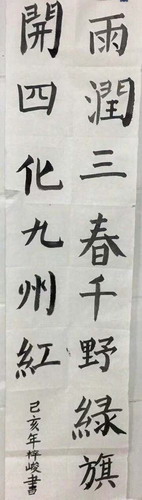 雨潤三春千野緑旗
開四化九州紅
己亥年梓峻書